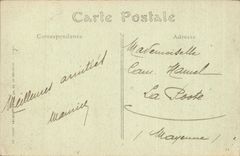 Carte Postale
Correspondance
Adresse
Meilleures amitiés
Maurice
Mademoiselle
Cam. Hamel
La Poste
(Mayenne)